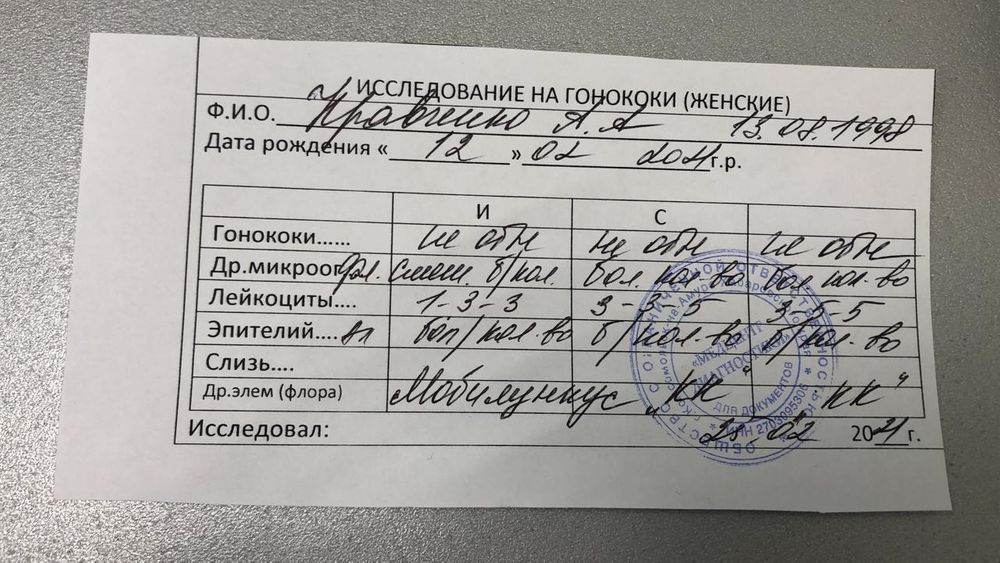 ИССЛЕДОВАНИЕ НА ГОНОКОКИ (ЖЕНСКИЕ)
Ф.И.О. Кравченко А.А 13.08.1998
Дата рождения « 12 » 02 2021 г.р.
И С
Гонококи...... не обн не обн не обн
Др.микроорг фл. смеш. б/кол. бол. кол-во бол. кол-во
Лейкоциты.... 1-3-3 3-3-5 3-5-5
Эпителий.... пл бол/кол-во б/кол-во б/кол-во
Слизь....
Др.элем (флора) Мобилункус „КК“ КК“
Исследовал: 25.02 2021г.
ОБЩЕСТВО С ОГРАНИЧЕННОЙ ОТВЕТСТВЕННОСТЬЮ
«МЕДЦЕНТР
ДИАГНОСТИКА»
ДЛЯ ДОКУМЕНТОВ
ИНН 2703095306